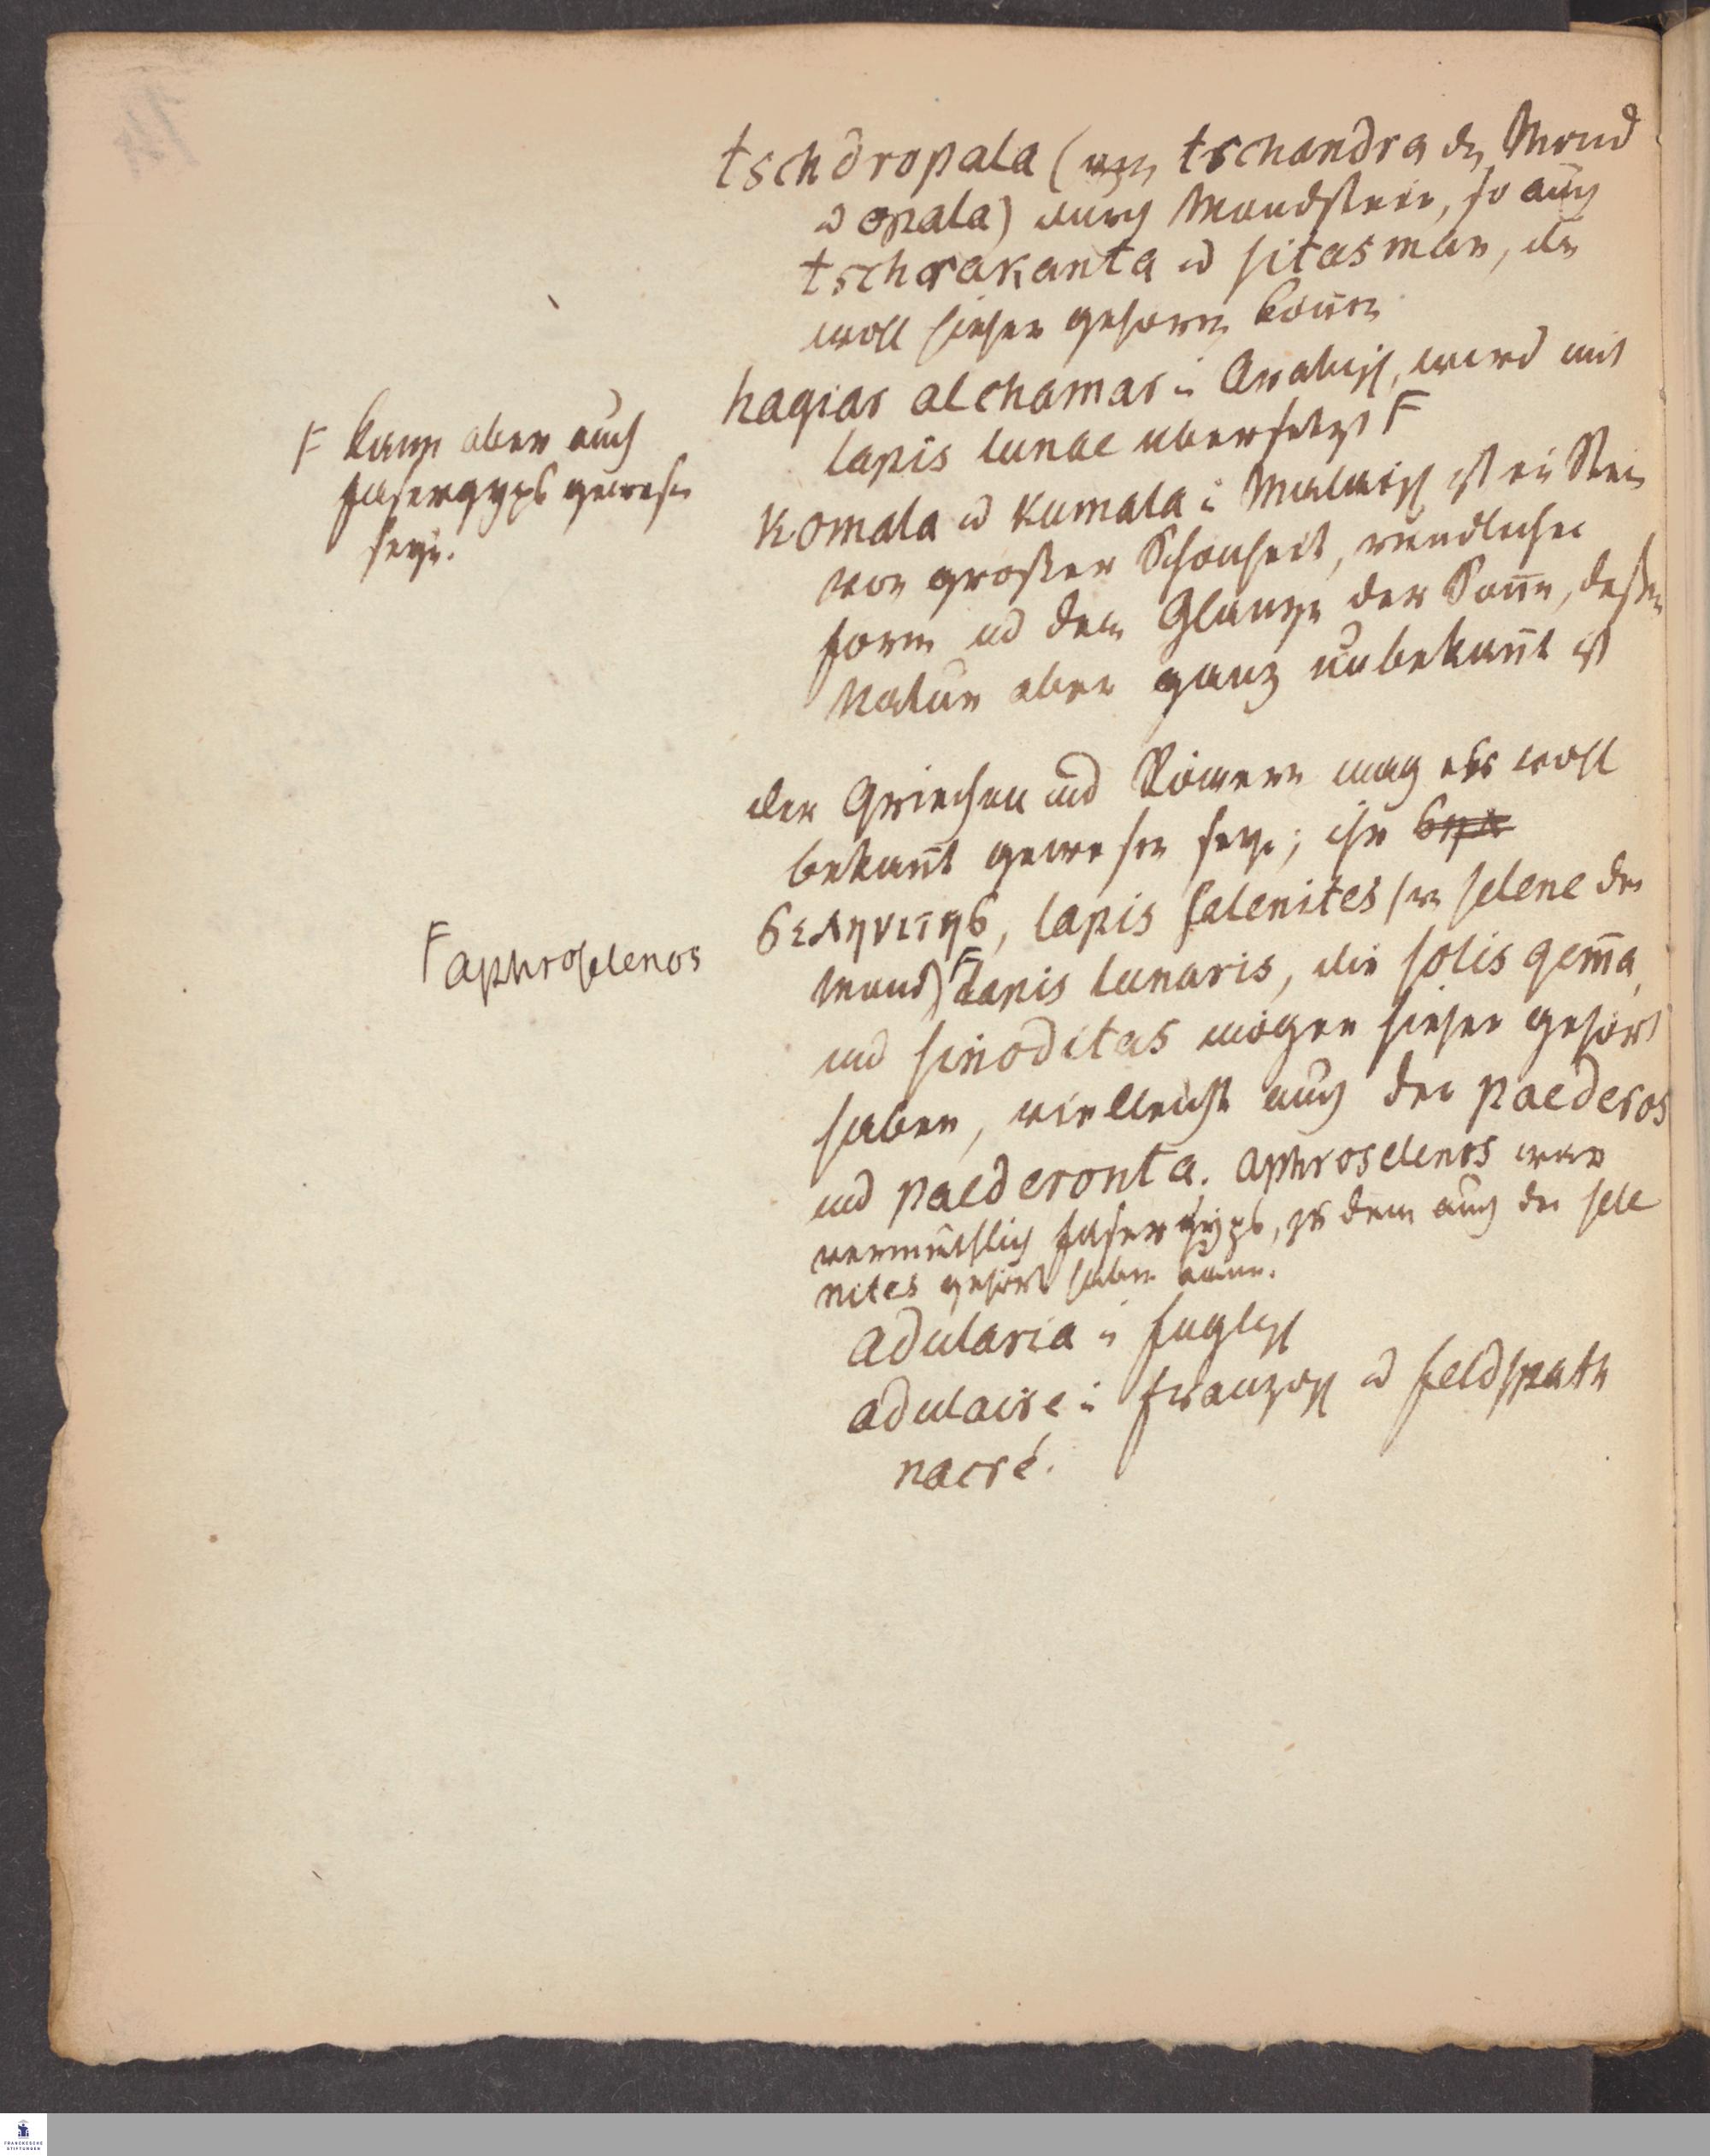 tschdropala (von tschandra der Mond
u opala) durch Mondstein, so auch
tschrakanta u sitasman, die
wohl hieher gehoren konnen
hagiar alchamar i Arabisch, wird mit
lapis lunae ubersetzt F
F kann aber auch
fasergyps gewesen
seyn.
Komala u kumala i Malaisch ist ein Stein
von großer Schonheit, rundlicher
form ud dem Glanze der Soñe, deßen
Natur aber ganz unbekañt ist
den Griechen und Römern mag er wohl
bekañt gewesen seyn; ihr
σεληνιτης, lapis selenites (v selene der
Mond) F lapis lunaris, die solis gem̃a,
F aphroselenos
und sinoditas mögen hieher gehört
haben, vielleicht auch der paederos
und paederonta. aphroselenos war
vermuthlich fasergyps, zu dem auch der sele
nites gehört haben kann.
adularia i Englisch
adulaire i französch u feldspath
nacré.
FRANCKESCHE
STIFTUNGEN